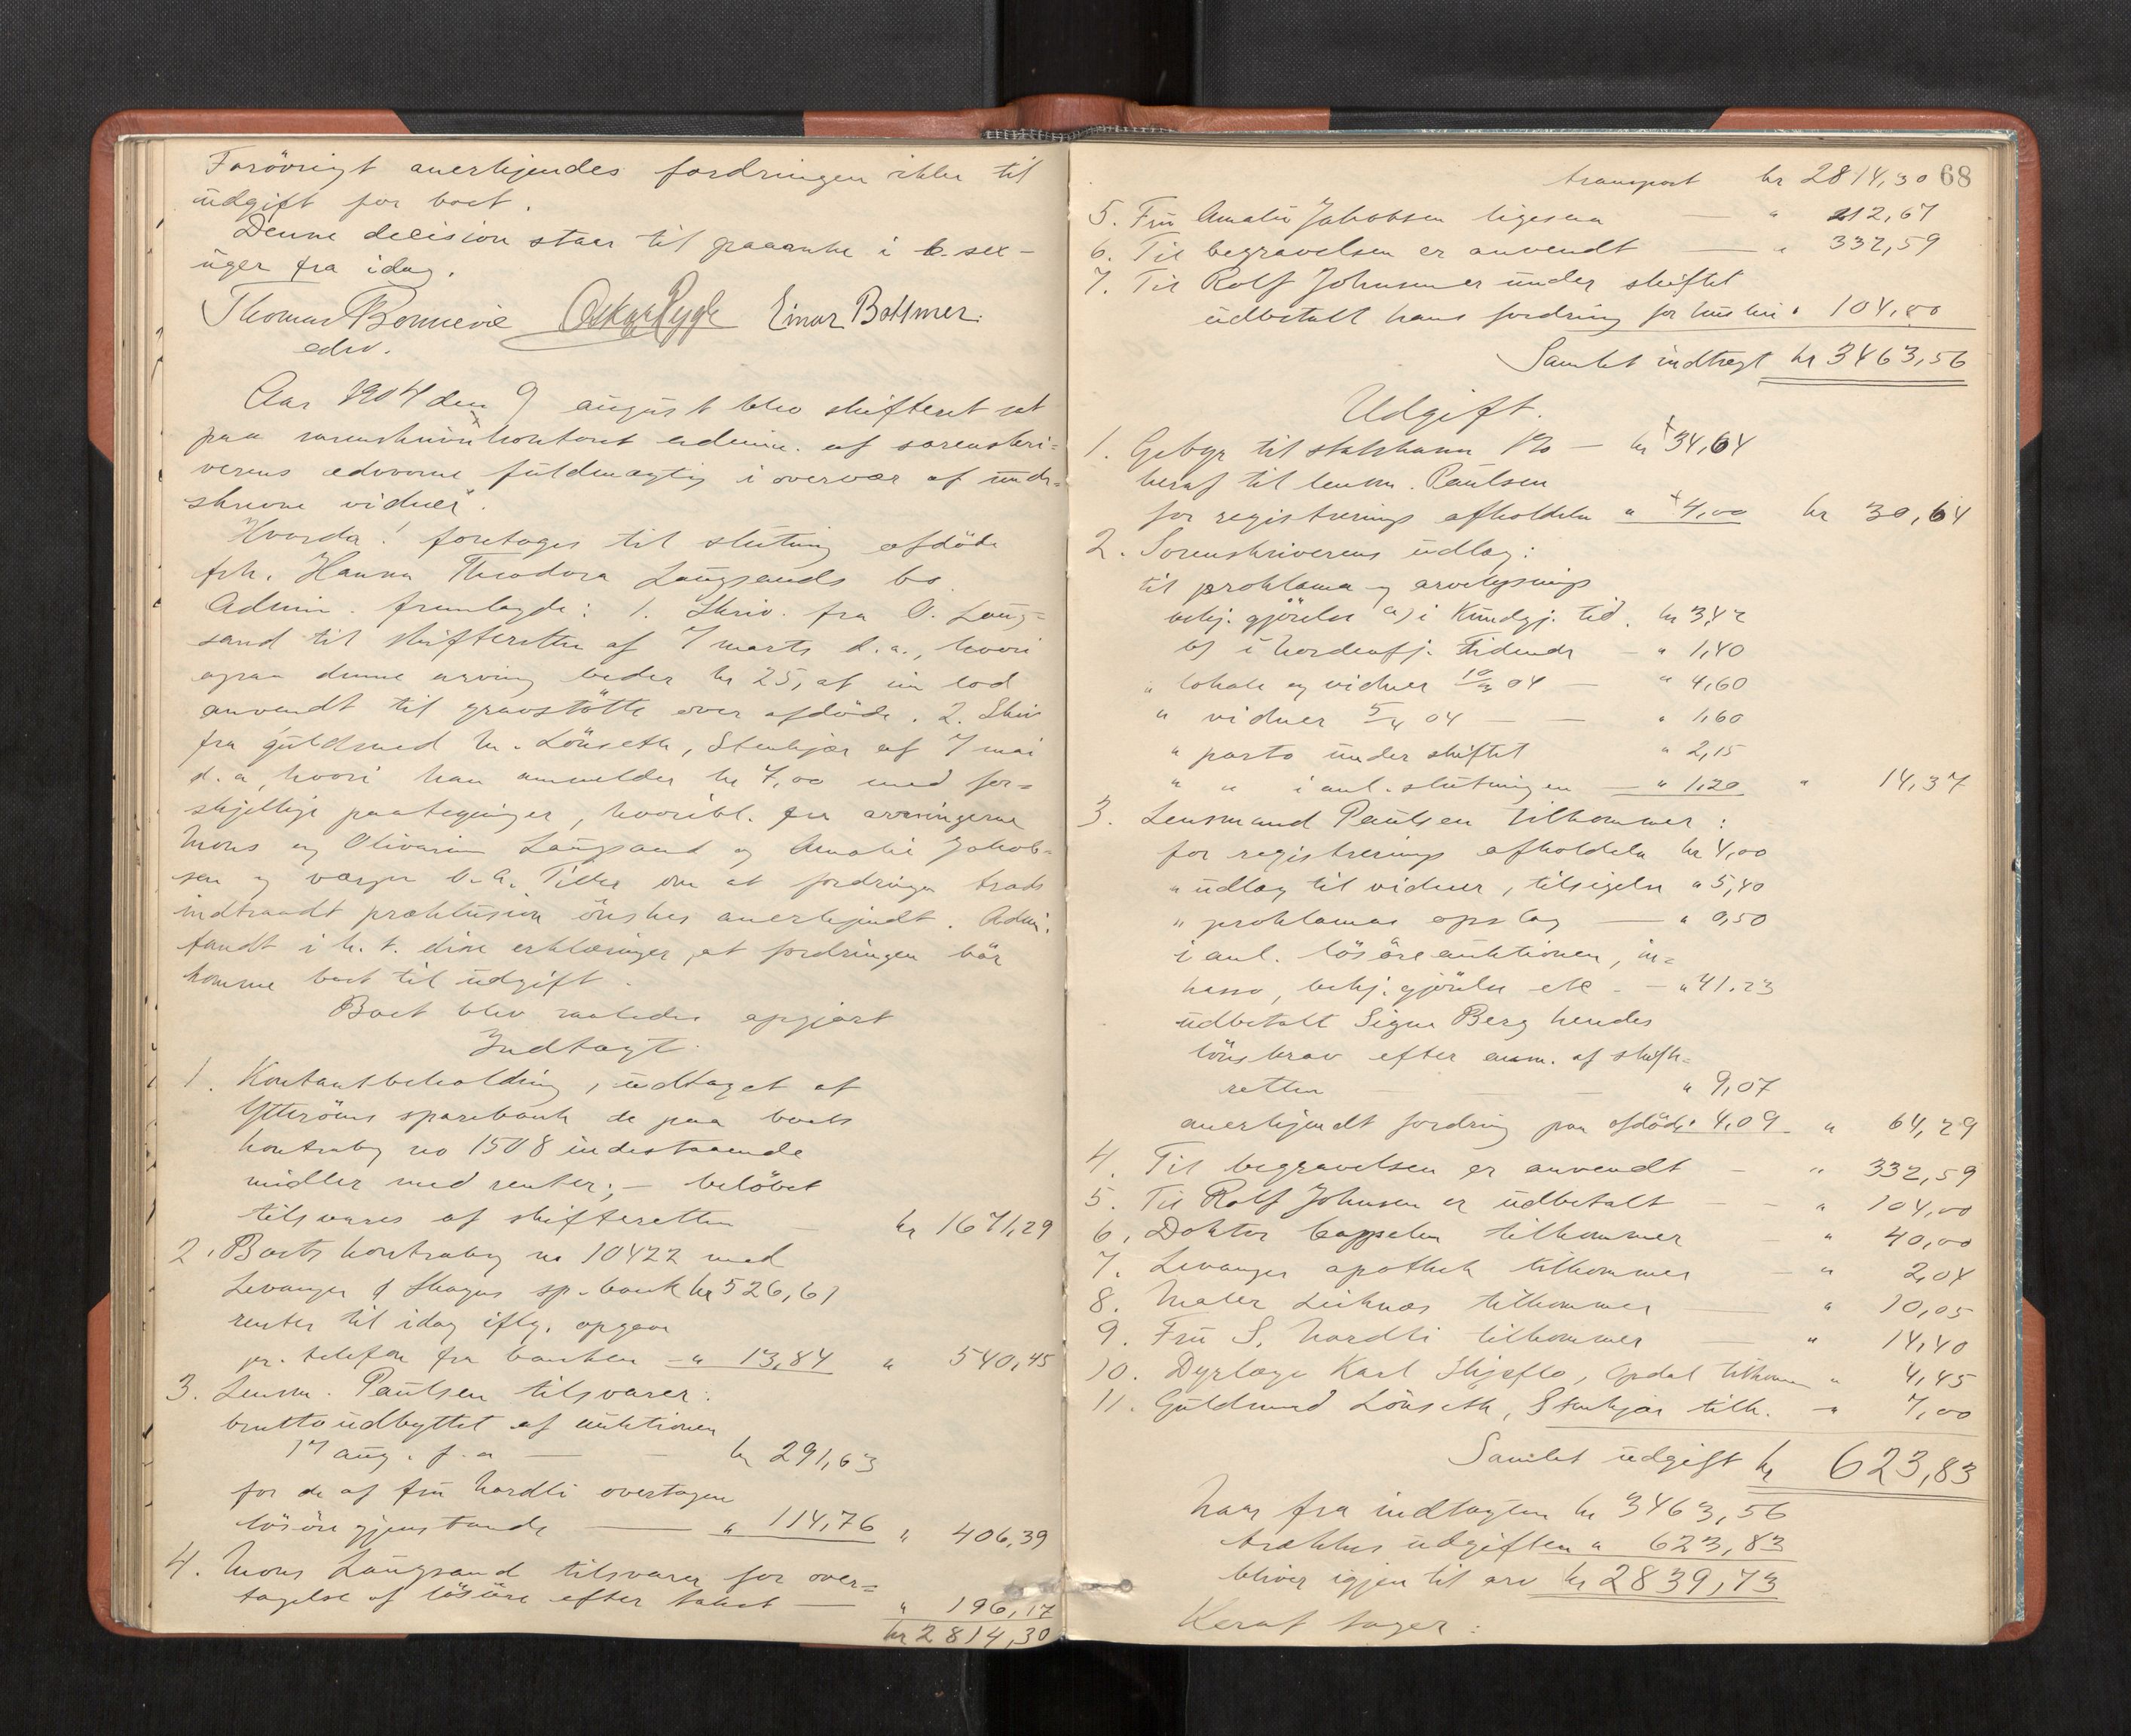 Forövrigt anerkjendes fordringen ikke til
udgift for boet.
Denne decision staar til paaanke i 6. sex-
uger fra idag.
Thomas Bonnevie Oskar Rygh Einar Bottmer.
edsv.
Aar 1904 den 9 august blev skifteret sat
paa sorenskriverkontoret admin. af sorenskri-
verens edsvorne fuldmægtig i overvær af undr-
skrevne vidner.
Hvorda! foretoges til slutning afdöde
frk. Hanna Theodora Langsands bo
Admin. fremlagde: 1. Skriv. fra O. Lang-
sand til skifteretten af 7 marts d.a., hvori
denne arving beder kr 25, af sin lod
anvendt til gravstötte over afdöde. 2. Skriv
fra guldsmed Lönseth, Stenkjær af 7 mai
d.a, hvori han anmelder kr 7,00 med for-
skjellige paategninger, hvoribl. fra arvingerne
Mons og Olivarius Langsand og Amalie Jakob-
sen og værge O. A. Tiller om at fordringen trods
indtraadt præklusion önskes anerkjendt. Adm.
fandt i h. t. disse erklæringer, at fordringen bör
komme boet til udgift.
Boet blev saaledes opgjort
Indtægt.
1. Kontantbeholdning, udtaget af
Ytteröens sparebank de paa boets
kontrabog no 1508 indestaaende
midler med renter; - belöbet
tilsvares af skifteretten - kr 1671,29
2. Boets kontrabog no 10422 med
Levanger & Skogns sp.bank kr 526,61
renter til idag iflg. opgave
pr. telefon fra banken - " 13,84 " 540,45
3. Lensm. Paulsen tilsvarer:
bruttoudbyttet af auktionen
17 aug. f.a - - kr 291,63
for de af fru Hardli overtagne
lösöregjenstande - " 114,76 " 406,39
4. Mons Langsand tilsvarer for over-
tagelse af lösöre efter takst - " 196,17
kr 2814,30
68
transport kr 2814,30
5. Fru Amalie Jakobsen ligesaa - " 212,67
6. Til begravelsen er anvendt - " 332,59
7. Til Rolf Johnsen er under skiftet
udbetalt hans fordring for husleie " 104,00
Samlet indtægt kr 3463,56
Udgift.
1. Gebyr til statskassen 1% - kr 34,64
heraf til lensm. Paulsen
for registrerings afholdelse " 4,00 kr 30,64
2. Sorenskriverens udlæg:
til proklama og arvelysnings
bekj.gjörelse a) i Kundgj. tid. kr 3,42
b) i Nordenfj. Tidende - " 1,40
" lokale og vidner 10/3 04 - " 4,60
" vidner 5/4 04 - - " 1,60
" porto under skiftet " 2,15
" " i anl. slutningen - " 1,20 " 14,37
3. Lensmand Paulsen tilkommer:
for registrerings afholdelse kr 4,00
" udlæg til vidner, tilsigelse " 5,40
" proklamas opslag - " 0,50
i anl. lösöreauktionen, in-
kasso, bekj.gjörelse etc. - " 41.23
udbetalt Signe Berg hendes
lönskrav efter anm. af skifte-
retten - " 9,07
anerkjendt fordring paa afdöde " 4,09 " 64,29
4. Til begravelsen er anvendt - " 332,59
5. Til Rolf Johnsen er udbetalt - " 104,00
6. Doktor Cappelen tilkommer - " 40,00
7. Levanger apothek tilkommer - " 2,04
8. Maler Leiknæs tilkommer - " 10,05
9. Fru S. Hardli tilkommer - " 14,40
10. Dyrlæge Karl Skjeflo, Opdal tilkommer " 4,45
11. Guldsmed Lönseth, Stenkjær tilk. - " 7,00
Samlet udgift kr 623,83
Naar fra indtægten kr 3463,56
trækkes udgiften " 623,83
bliver igjen til arv kr 2839,73
Heraf tager: